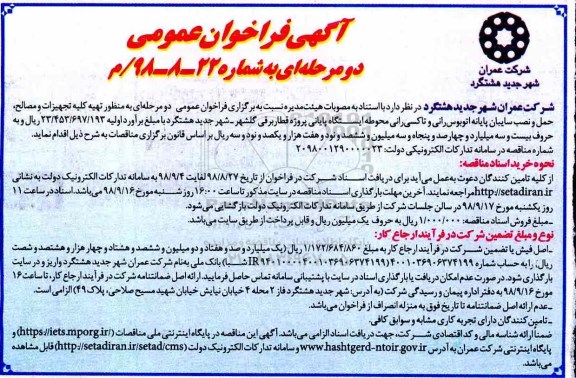 آگهی فراخوان عمومی
دو مرحله‌ای به شماره ۲۲-۸-۹۸/م
شرکت عمران
شهر جدید هشتگرد
شرکت عمران شهر جدید هشتگرد در نظر دارد با استناد به مصوبات هیئت مدیره نسبت به برگزاری فراخوان عمومی دو مرحله‌ای به منظور تهیه کلیه تجهیزات و مصالح،
حمل و نصب سایبان پایانه اتوبوس‌رانی و تاکسی‌رانی محوطه ایستگاه پایانی پروژه قطار برقی گلشهر ـ شهر جدید هشتگرد با مبلغ برآورد اولیه ۲۳/۴۵۳/۶۹۷/۱۹۳ ریال و به
حروف بیست و سه میلیارد و چهارصد و پنجاه و سه میلیون و ششصد و نود و هفت هزار و یکصد و نود و سه ریال بر اساس قانون برگزاری مناقصات به شرح ذیل اقدام نماید.
شماره مناقصه در سامانه تدارکات الکترونیکی دولت: ۲۰۹۸۰۰۱۲۹۰۰۰۰۰۲۳
نحوه خرید اسناد مناقصه:
از کلیه تامین کنندگان دعوت به عمل می‌آید برای دریافت اسناد شرکت در فراخوان از تاریخ ۹۸/۸/۲۷ لغایت ۹۸/۹/۴ به سامانه تدارکات الکترونیک دولت به نشانی
http://setadiran.ir مراجعه نمایند. آخرین مهلت بارگذاری اسناد مناقصه در سایت مذکور تا ساعت ۱۶:۰۰ روز شنبه مورخ ۹۸/۹/۱۶ می‌باشد. اسناد در ساعت ۱۱
روز یکشنبه مورخ ۹۸/۹/۱۷ در سالن جلسات شرکت از طریق سامانه تدارکات الکترونیک دولت بازگشایی می‌شود.
ـ مبلغ فروش اسناد مناقصه: ۱/۰۰۰/۰۰۰ ریال به حروف یک میلیون ریال و قابل پرداخت از طریق سایت می‌باشد.
نوع و مبلغ تضمین شرکت در فرآیند ارجاع کار:
ـ اصل فیش یا تضمین شرکت در فرآیند ارجاع کار به مبلغ ۱/۱۷۲/۶۸۴/۸۶۰ ریال (یک میلیارد و صد و هفتاد و دو میلیون و ششصد و هشتاد و چهار هزار و هشتصد و شصت
ریال) را به حساب شماره نزد بانک ملی به نام شرکت عمران شهر جدید هشتگرد واریز و در سایت
بارگذاری شود. در صورت عدم امکان دریافت یا بارگذاری اسناد در سایت با پشتیبانی سامانه تماس حاصل فرمایید. ارائه اصل ضمانتنامه شرکت در فرآیند ارجاع کار، تا ساعت ۱۶
مورخ ۹۸/۹/۱۶ به دفتر اداره پیمان و رسیدگی شرکت (به آدرس: شهر جدید هشتگرد فاز ۲ محله ۴ خیابان نیایش خیابان شهید مسیح صلاحی، پلاک ۴۹) الزامی است.
ـ عدم ارائه اصل ضمانتنامه تا تاریخ فوق به منزله انصراف از فراخوان می‌باشد.
ـ تامین کنندگان دارای تجربه کاری مشابه و سوابق کافی.
ضمناً ارائه شناسه ملی و کد اقتصادی شرکت، جهت دریافت اسناد الزامی می‌باشد. آگهی این مناقصه در پایگاه اینترنتی ملی مناقصات (https://iets.mporg.ir) و
پایگاه اینترنتی شرکت عمران به آدرس www.hashtgerd-ntoir.gov.ir و سامانه تدارکات الکترونیک دولت (http://setadiran.ir/setad/cms) قابل مشاهده
می‌باشد.